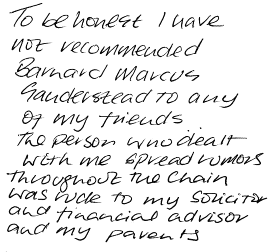 To be honest I have
not recommended
Barnard Marcus
Sanderstead to any
of my friends
The person who dealt
with me spread rumors
throughout the chain
was rude to my solicitor
and financial advisor
and my parents